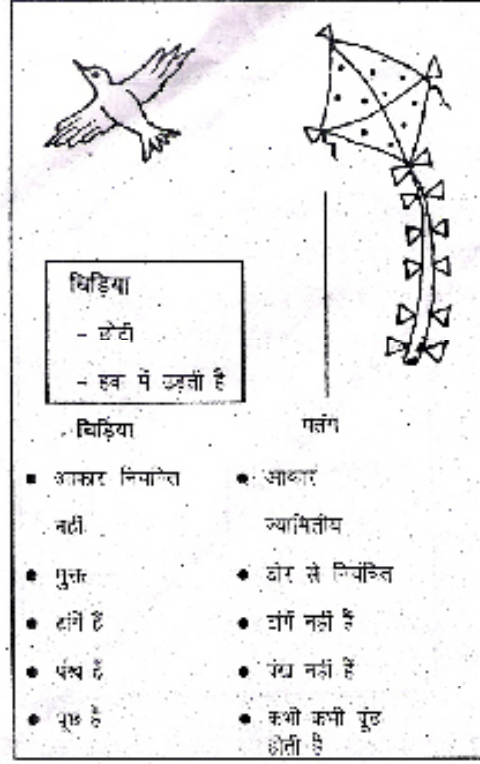 चिड़िया
- छोटी
- हवा में उड़ती है
चिड़िया
पतंग
• आकार नियमित
नहीं
• मुक्त
• टांगें हैं
• पंख हैं
• पूंछ है
• आकार
ज्यामितीय
• डोर से नियंत्रित
• टांगें नहीं हैं
• पंख नहीं हैं
• कभी कभी पूंछ
होती है